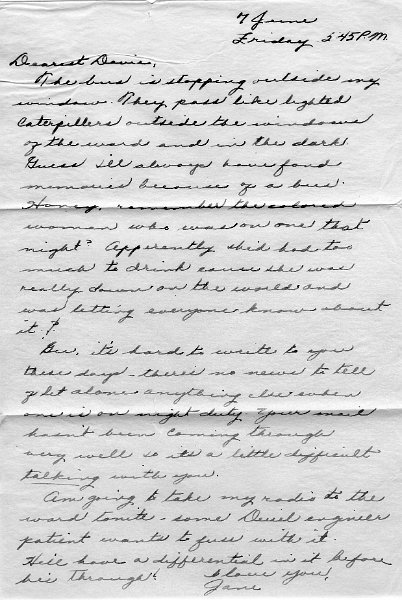 7 June
Friday 5:45 P.M.
Dearest Davie,
The bus is stopping outside my
window. They pass like lighted
caterpillers outside the windows
of the ward and in the dark
Guess I'll always have fond
memories because of a bus.
Honey, remember the colored
woman who was on one that
night? Apparently she'd had too
much to drink cause she was
really down on the world and
was letting everyone know about
it!
Gee, it's hard to write to you
these days - there's no news to tell
of let alone anything else when
one is on night duty. Your mail
hasn't been coming through
very well so its a little difficult
talking with you.
Am going to take my radio to the
ward tonite - some Diesel engineer
patient wants to fuss with it.
He'll have a differential in it before
he's through!
I love you,
Jane